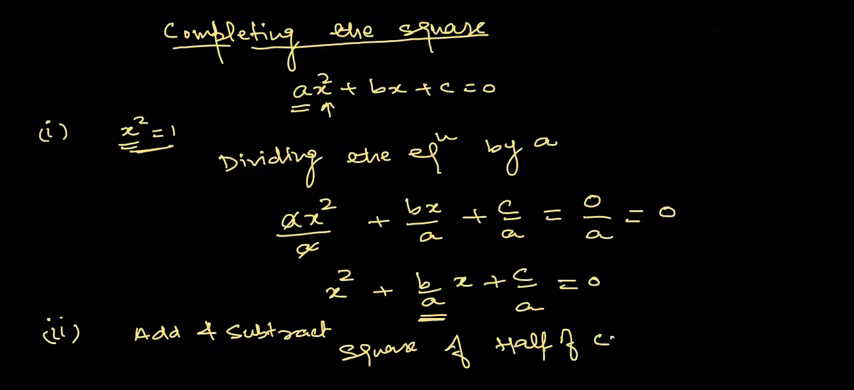 Completing the square
ax² + bx + c = 0
(i) x² = 1
Dividing the eqⁿ by a
ax²/a + bx/a + c/a = 0/a = 0
x² + b/a x + c/a = 0
(ii) Add & Subtract
square of Half of c